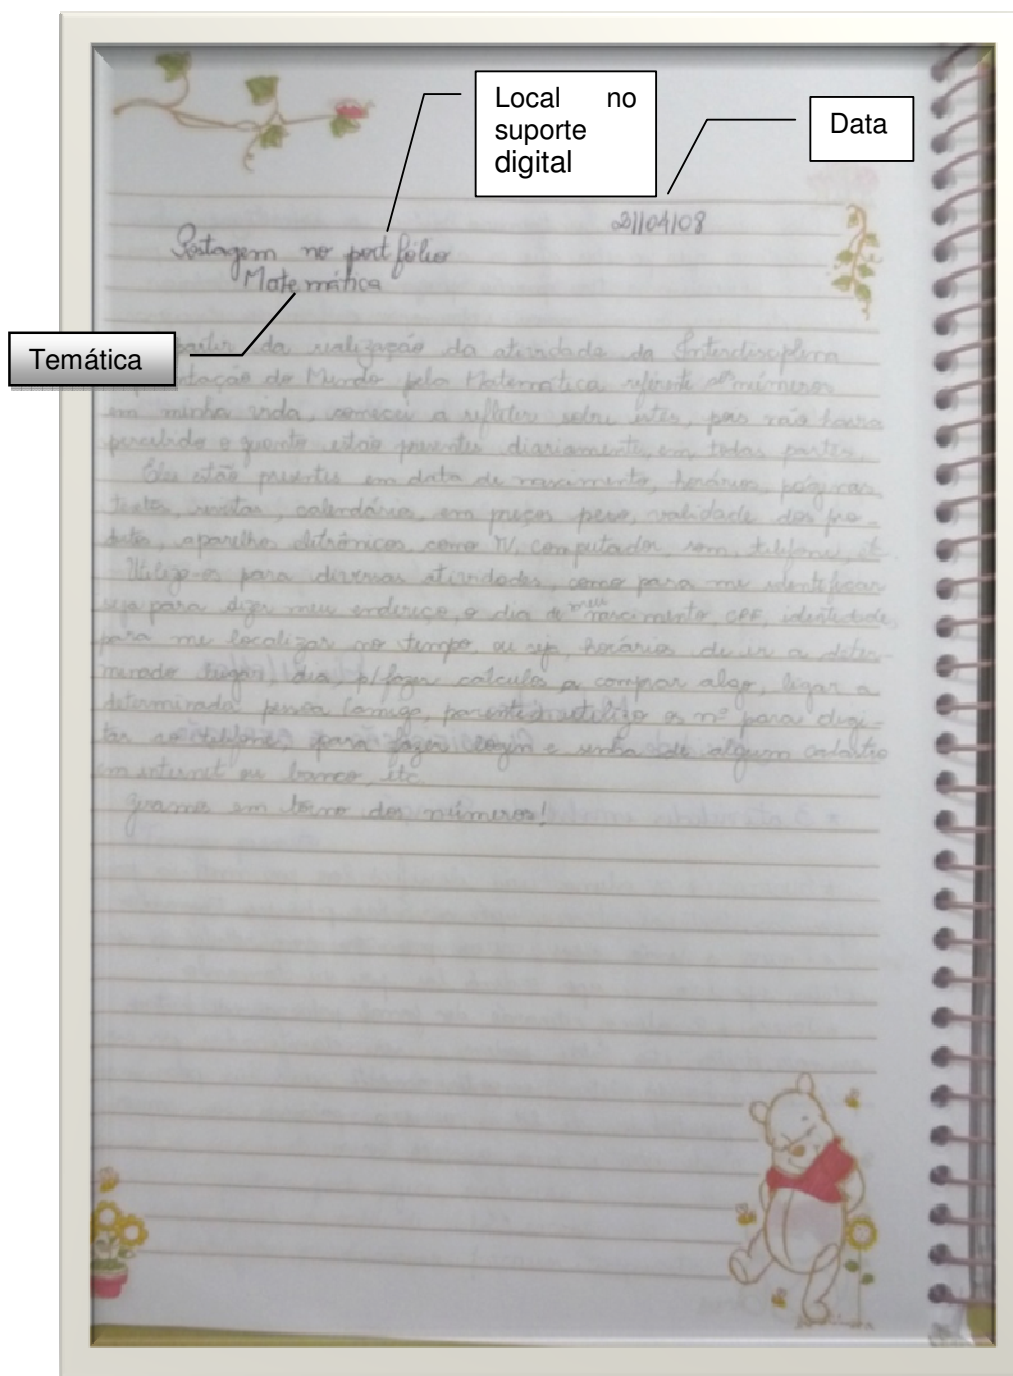 Local no
suporte
digital
Data
21/04/08
Postagem no portfólio
Matemática
Temática
partir da realização da atividade da Interdisciplina
do Mundo pela Matemática referente aos números
em minha vida, comecei a refletir sobre estes, pois não havia
percebido o quanto estão presentes diariamente, em todas partes.
Eles estão presentes em data de nascimento, horários, páginas,
textos, revistas, calendários, em preços peso, validade dos pro-
dutos, aparelhos eletrônicos como TV, computador, som, telefone, etc.
Utilizo-os para diversas atividades, como para me identificar
seja para dizer meu endereço, o dia de meu nascimento, CPF, identidade,
para me localizar no tempo, ou seja, horários de ir a deter-
minado lugar, dia, p/ fazer cálculos, comprar algo, ligar a
determinada pessoa (amiga, parente) utilizo os nº para digi-
tar no telefone, para fazer login e senha de algum cadastro
em internet ou banco, etc.
giramos em torno dos números!